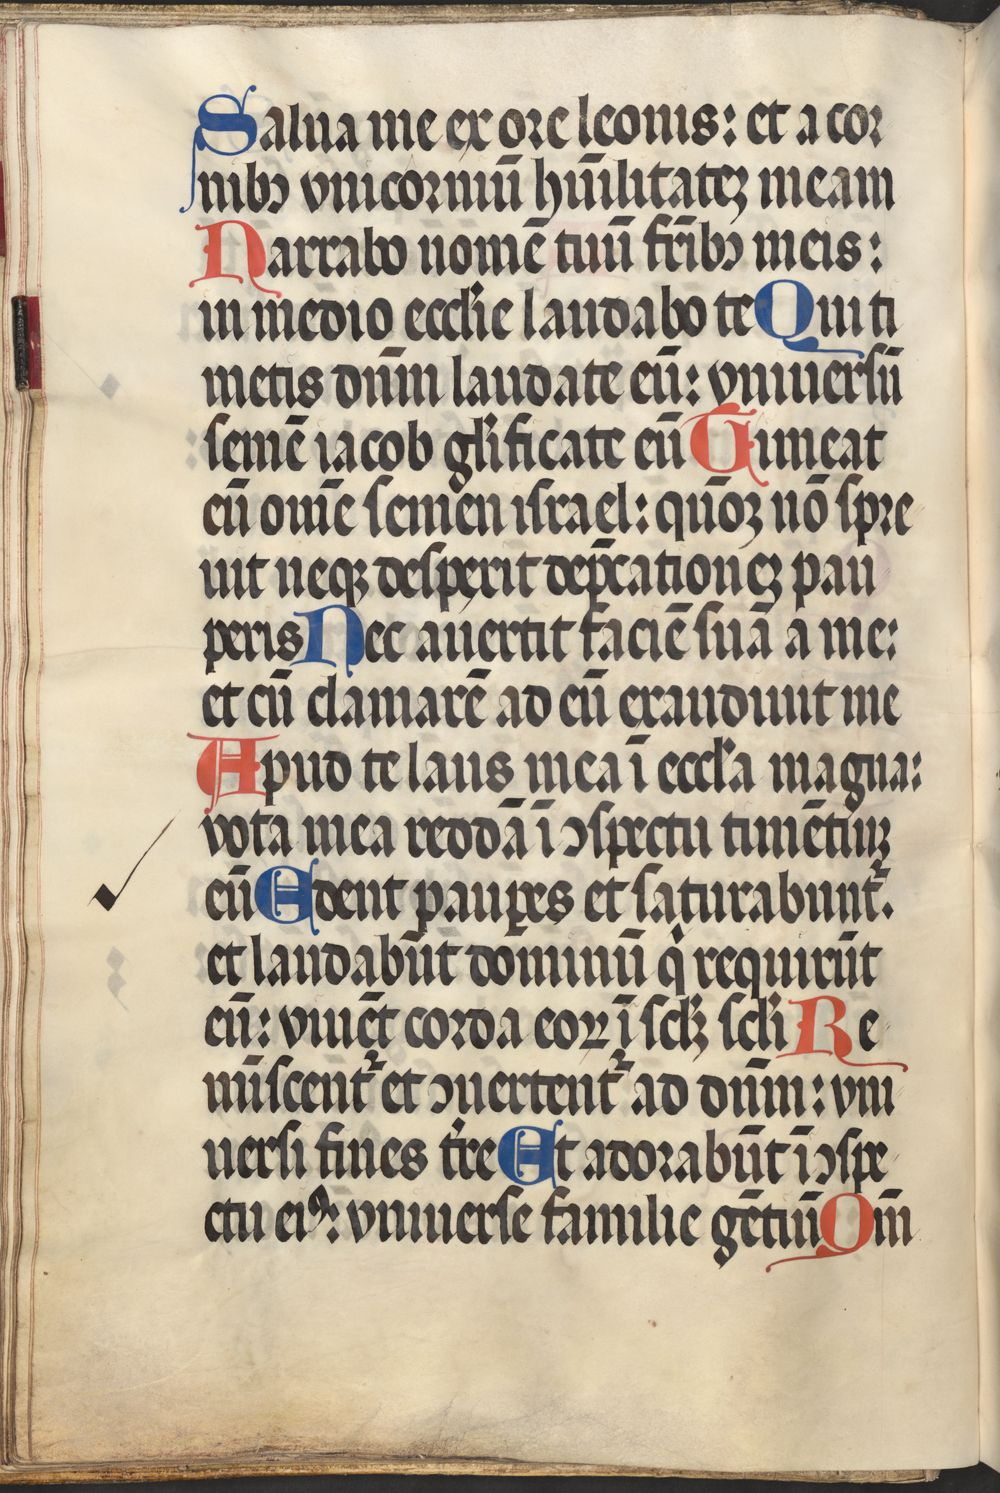 Salua me ex ore leonis: et a cor
nibꝰ vnicorniū hūilitateꝫ meam
Narrabo nomē tuū fr̄ibꝰ meis:
in medio eccl̄ie laudabo te Qui ti
metis dn̄m laudate eū: vniuersū
semē iacob gl̄ificate eū Timeat
eū om̄e semen israel: qūoꝫ nō spre
uit neqꝫ desperit dep̄cationeꝫ pau
peris Nec auertit faciē suā a me:
et cū clamarē ad eū exaudiuit me
Apud te laus mea ī eccl̄a magna:
vota mea reddā ī ꝯspectu timētiuꝫ
eū Edent pauꝑes et saturabunt᷑.
et laudabūt dominū qͥ requirūt
eū: viuēt corda eoꝝ ī scl̄ꝫ scl̄i Re
mīscent᷑ et ꝯuertent᷑ ad dn̄m: vni
uersi fines t̄re Et adorabūt ī ꝯspe
ctu eiꝰ: vniuerse familie gētiū Qm̄